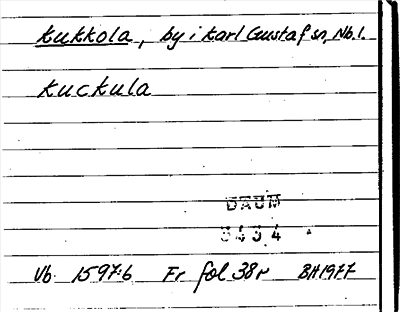 Kukkola, by i Karl Gustaf sn, Nb.l.
Kuckula
DAUM
3434
Vb 1597:6 Fr fol 38r BH1977